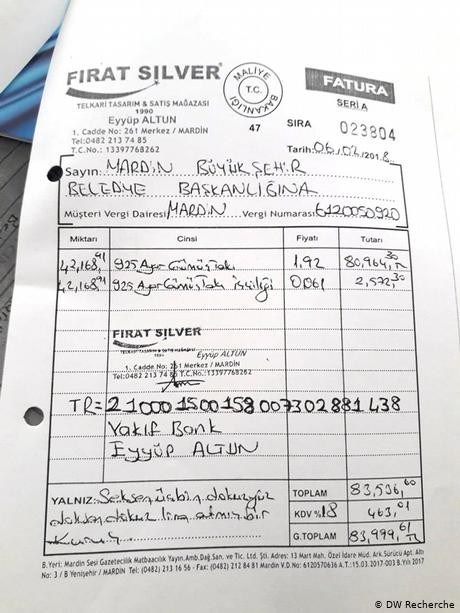 FIRAT SILVER
TELKARİ TASARIM & SATIŞ MAĞAZASI
1990
Eyyüp ALTUN
1. Cadde No: 261 Merkez / MARDİN
Tel:0482 213 74 85
T.C.No.: 13397768262
MALİYE T.C. BAKANLIĞI
47
FATURA
SERİ A
SIRA 023804
Tarih: 06/02/2018
Sayın: MARDİN BÜYÜKŞEHİR
BELEDİYE BAŞKANLIĞINA
Müşteri Vergi Dairesi MARDİN Vergi Numarası 6120050920
Miktarı Cinsi Fiyatı Tutarı
42,168,91 925 Ayar Gümüş Takı 1,92 80,964,30 TL
42,168,91 925 Ayar Gümüş Takı işçiliği 0,061 2,572,30
FIRAT SILVER
TELKARİ TASARIM & SATIŞ MAĞAZASI
1990 Eyyüp ALTUN
1. Cadde No: 261 Merkez / MARDİN
Tel:0482 213 74 85 T.C.No.: 13397768262
TR= 21000 1500 158 007302881438
Vakıf Bank
Eyyüp ALTUN
YALNIZ: Seksenüçbin dokuzyüz
doksandokuz lira altmışbir
Kuruş
TOPLAM 83,536,60
KDV %18 463,01
G.TOPLAM 83,999,61 TL
B.Yeri: Mardin Sesi Gazetecilik Matbaacılık Yayın.Amb.Dağ.San. ve Tic. Ltd. Şti. Adres: 13 Mart Mah. Özel İdare Müd. Ark Sürücü Apt. Altı
No: 3 / B Yenişehir / MARDİN Tel: (0482) 213 16 56 - Fax: (0482) 212 84 81 Mardin V.D. No: 6120570636 A.T.:15.03.2017-003 B.Yılı 2017
© DW Recherche